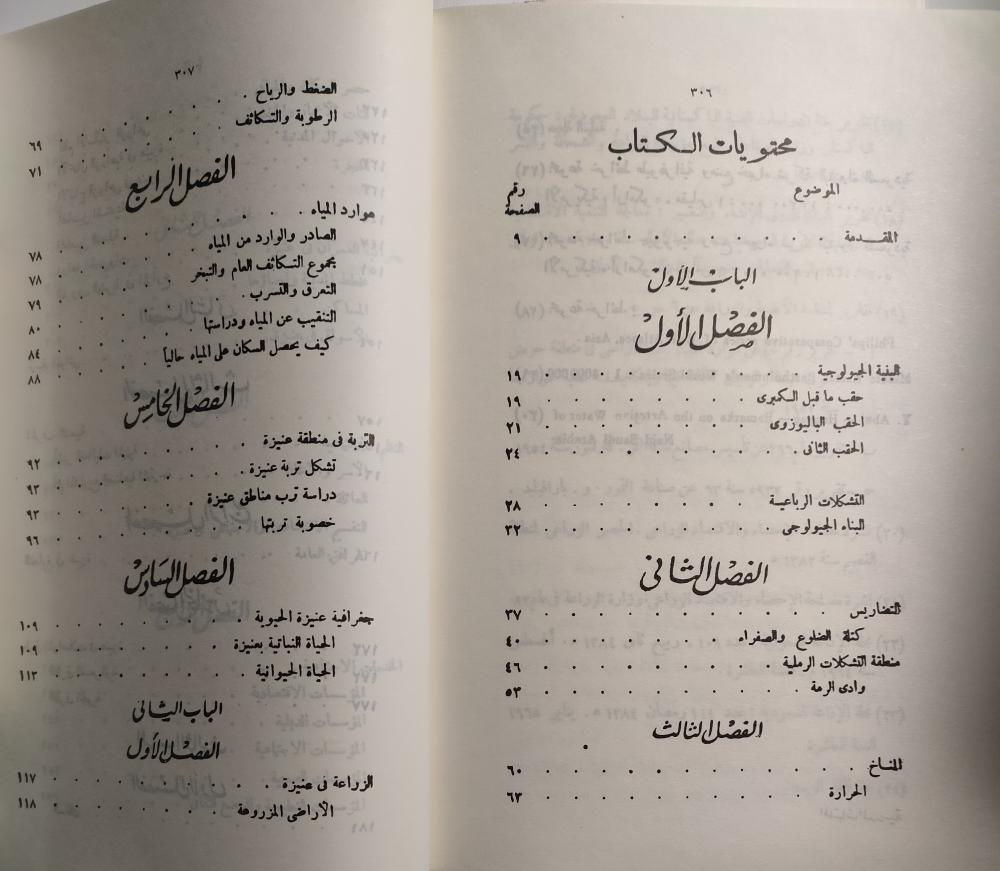 ٣٠٦
محتويات الكتاب
الموضوع رقم الصفحة
المقدمة . . . . . . . . . . ٩
الباب الأول
الفصل الأول
البنية الجيولوجية . . . . . . . . . . ١٩
حقب ما قبل الكمبرى . . . . . . . . ١٩
الحقب الباليوزوى . . . . . . . . ٢١
الحقب الثانى . . . . . . . . . . ٢٤
التشكلات الرباعية . . . . . . . . ٢٨
البناء الجيولوجى . . . . . . . . ٣٢
الفصل الثانى
التضاريس . . . . . . . . . . ٣٧
كتلة الضلوع والصفراء . . . . . . . ٤٠
منطقة التشكلات الرملية . . . . . . . . ٤٦
وادى الرمة . . . . . . . . . . ٥٣
الفصل الثالث
المناخ . . . . . . . . . . . ٦٠
الحرارة . . . . . . . . . . ٦٣
٣٠٧
الضغط والرياح . . . . . . . . ٦٩
الرطوبة والتكاثف . . . . . . . . ٧١
الفصل الرابع
موارد المياه . . . . . . . . . . ٧٨
الصادر والوارد من المياه . . . . . . . ٧٨
مجموع التكاثف العام والتبخر . . . . . . ٧٩
التعرق والتسرب . . . . . . . . ٨٠
التنقيب عن المياه ودراستها . . . . . . . ٨٤
كيف يحصل السكان على المياه حالياً . . . . . ٨٨
الفصل الخامس
التربة فى منطقة عنيزة . . . . . . . . ٩٢
تشكل تربة عنيزة . . . . . . . . ٩٣
دراسة ترب مناطق عنيزة . . . . . . . ٩٣
خصوبة تربتها . . . . . . . . ٩٦
الفصل السادس
جغرافية عنيزة الحيوية . . . . . . . . ١٠٩
الحياة النباتية بعنيزة . . . . . . . . ١٠٩
الحياة الحيوانية . . . . . . . . ١١٣
الباب الثانى
الفصل الأول
الزراعة فى عنيزة . . . . . . . . ١١٧
الأراضى المزروعة . . . . . . . . ١١٨